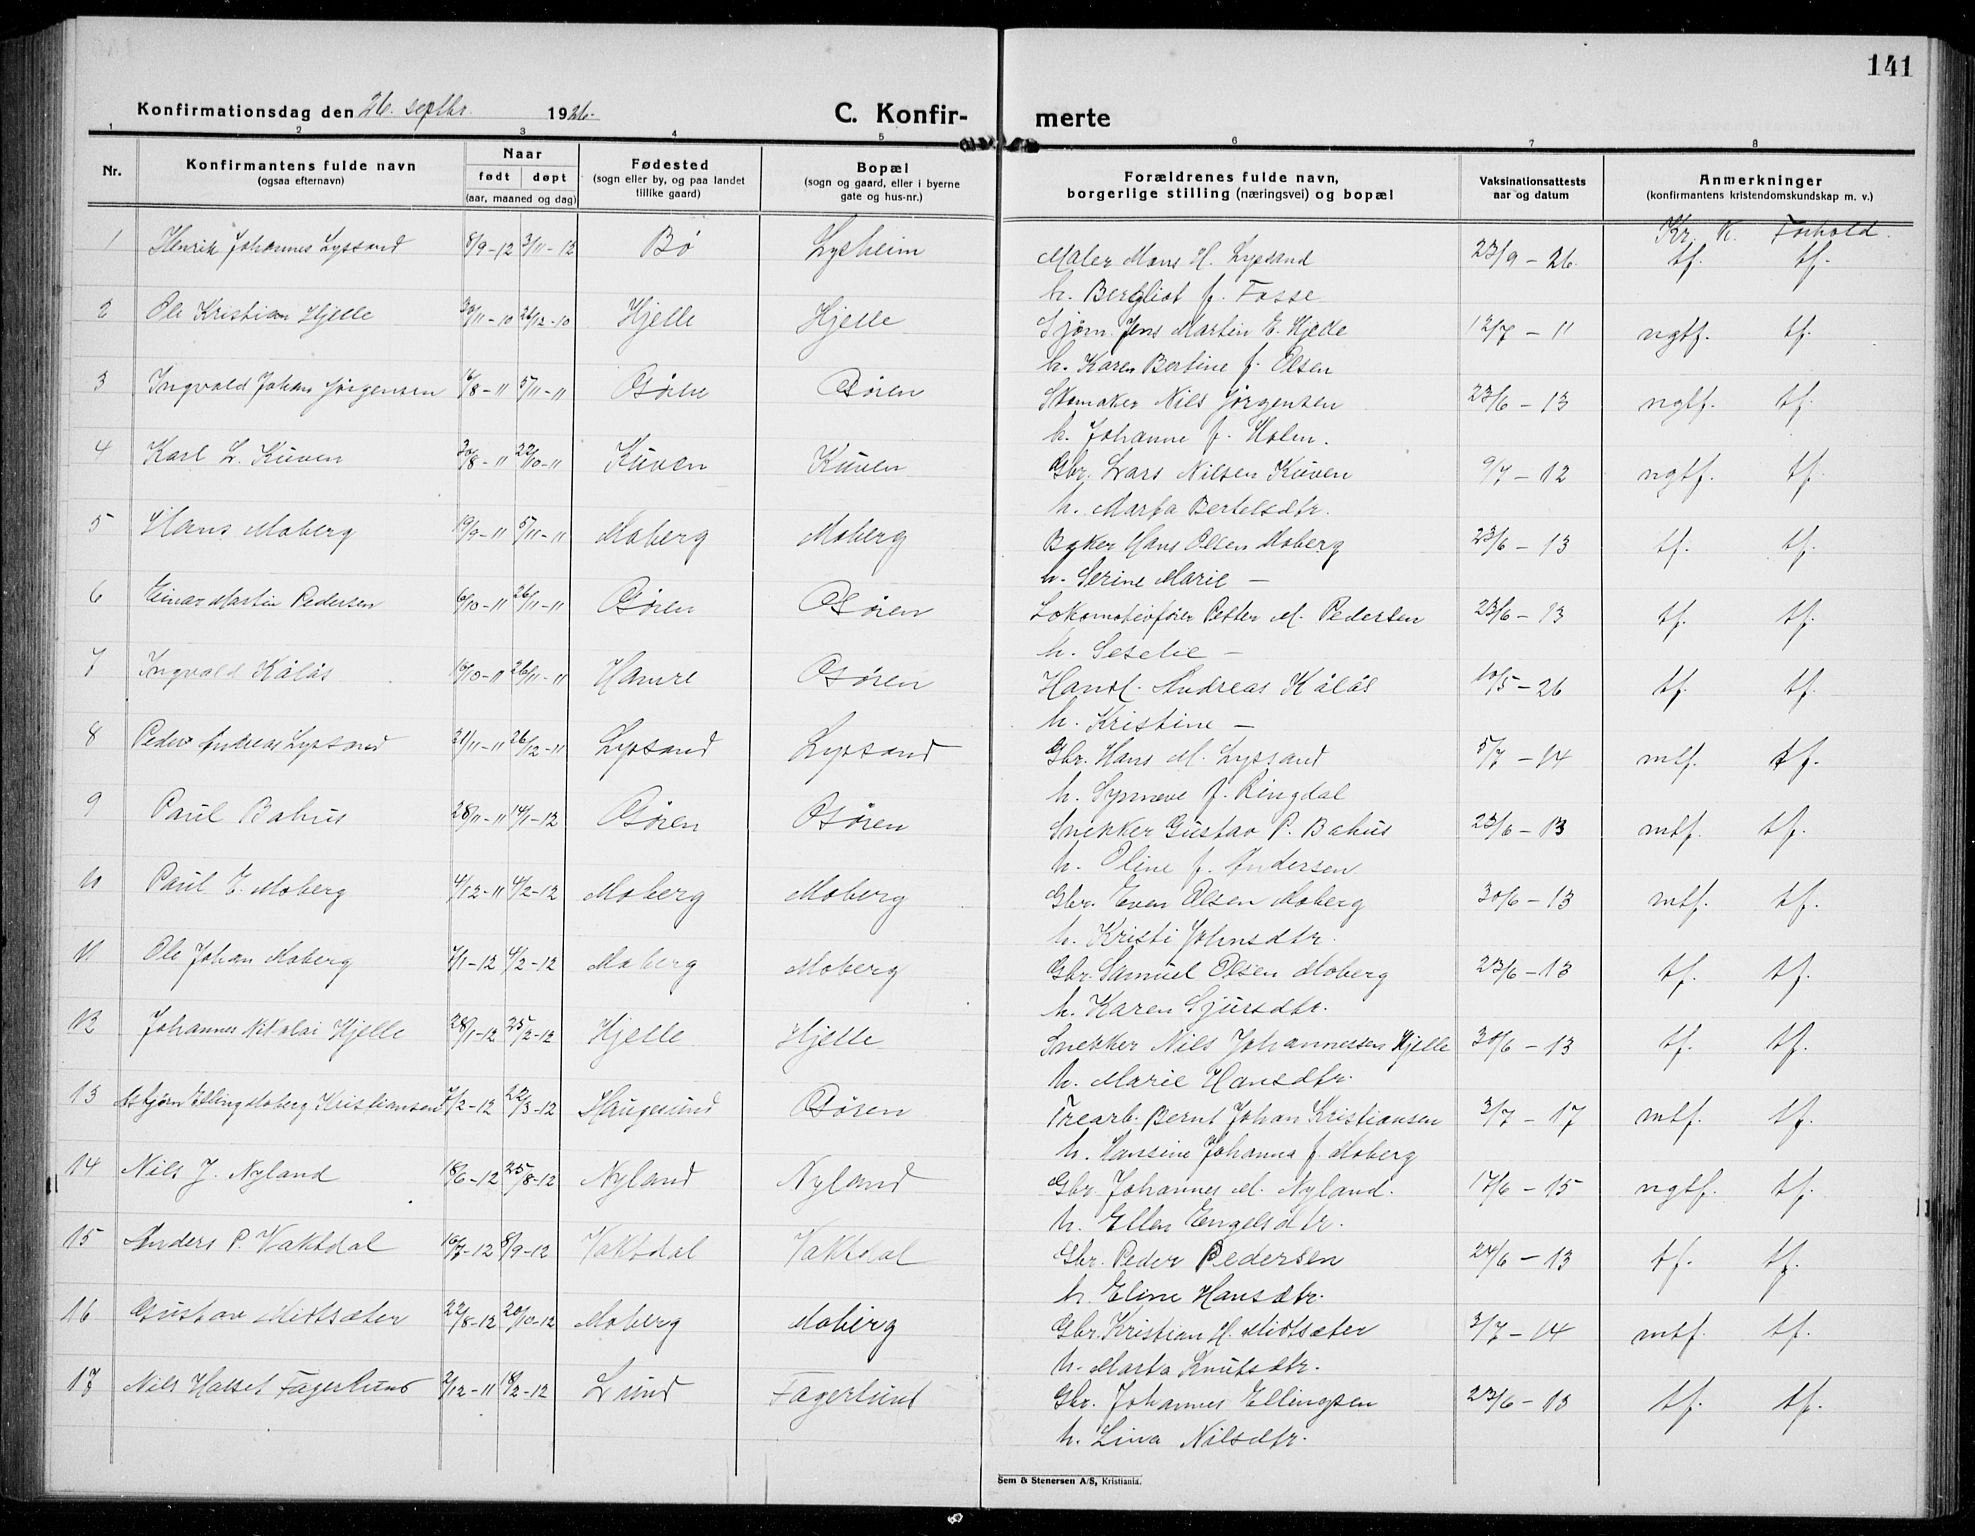 141
Konfirmationsdag den 26. septbr. 1926.
C. Konfirmerte
1 2 3 4 5 6 7 8
Nr. Konfirmantens fulde navn (ogsaa efternavn) Naar født døpt (aar, maaned og dag) Fødested (sogn eller by, og paa landet tillike gaard) Bopæl (sogn og gaard, eller i byerne gate og hus-nr.) Forældrenes fulde navn, borgerlige stilling (næringsvei) og bopæl Vaksinationsattests aar og datum Anmerkninger (konfirmantens kristendomskundskap m. v.)
Kr. k. Forhold.
1 Henrik Johannes Lyssand 8/9-12 3/11-12 Bø Lysheim Maler Mons H. Lyssand 23/9-26. tf. tf.
h. Bergliot f. Fosse
2 Ole Kristian Hjelle 30/11-10 26/12-10 Hjelle Hjelle Sjøm. Jens Martin E. Hjelle 12/7-11 ngtf. tf.
h. Karen Bertine f. Olsen
3 Ingvald Johan Jørgensen 16/8-11 5/11-11 Osøren Osøren Skomaker Nils Jørgensen 23/6-13 ngtf. tf.
h. Johanne f. Holen.
4 Karl L. Kuven 30/8-11 22/10-11 Kuven Kuven Gbr. Lars Nilsen Kuven 9/7-12 ngtf. tf.
h. Marta Bertelsdtr.
5 Hans Moberg 19/9-11 5/11-11 Moberg Moberg Baker Hans Olsen Moberg 23/6-13 tf. tf.
h. Serine Marie —
6 Einar Martin Pedersen 6/10-11 26/11-11 Osøren Osøren Lokomotivfører Petter M. Pedersen 23/6-13 tf. tf.
h. Seselie —
7 Ingvald Kålås 10/10-11 26/11-11 Hamre Osøren Handl. Andreas Kålås 10/5-26 tf. tf.
h. Kristine —
8 Peder Andreas Lyssand 21/11-11 26/12-11 Lyssand Lyssand Gbr. Hans M. Lyssand 5/7-14 mtf. tf.
h. Synneve f. Ringdal
9 Paul Bahus 28/11-11 14/1-12 Osøren Osøren Snekker Gustav P. Bahus 23/6-13 mtf. tf.
h. Oline f. Andersen
10 Paul E. Moberg 4/12-11 4/2-12 Moberg Moberg Gbr. Even Olsen Moberg 30/6-13 mtf. tf.
h. Kristi Johnsdtr.
11. Ole Johan Moberg 7/1-12 4/2-12 Moberg Moberg Gbr. Samuel Olsen Moberg 23/6-13 tf. tf.
h. Karen Sjursdtr.
12 Johannes Nikolai Hjelle 28/1-12 25/2-12 Hjelle Hjelle Snekker Nils Johannessen Hjelle 30/6-13 tf. tf.
h. Marie Hansdtr.
13 Asbjørn Elling Moberg Kristiansen 7/2-12 22/3-12 Haugesund Osøren Trearb. Bernt Johan Kristiansen 3/7-17 mtf. tf.
h. Hansine Johanna f. Moberg
14 Nils J. Nyland 18/6-12 25/8-12 Nyland Nyland Gbr. Johannes M. Nyland. 17/6-15 ngtf. tf.
h. Ellen Engelsdtr.
15 Anders P. Vaktdal 16/7-12 8/9-12 Vaktdal Vaktdal Gbr. Peder Pedersen 24/6-13 tf. tf.
h. Eline Hansdtr.
16 Gustav Midtsæter 22/8-12 20/10-12 Moberg Moberg Gbr. Kristian H. Midtsæter 3/7-14 mtf. tf.
h. Marta Knutsdtr.
17 Nils Halset Fagerlund 2/12-11 18/2-12 Lund Fagerlund Gbr. Johannes Ellingsen 23/6-13 tf. tf.
h. Lina Nilsdtr.
Sem & Stenersen A/S, Kristiania.